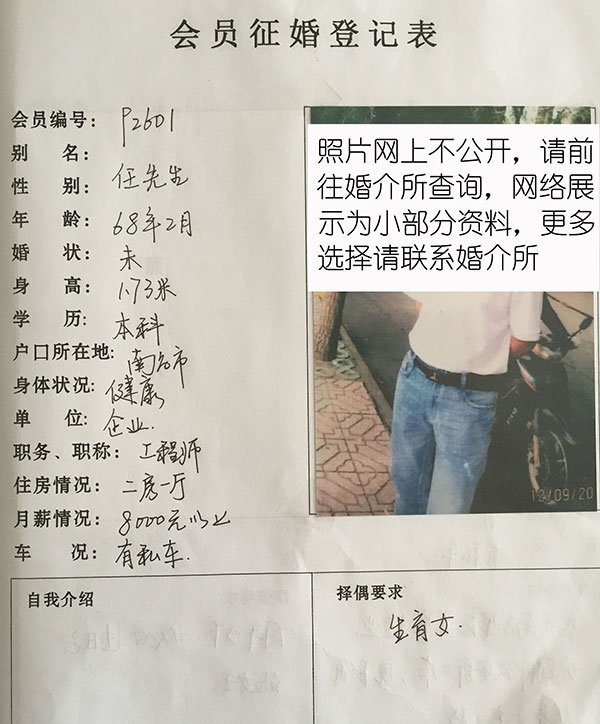 会员征婚登记表
会员编号: P2601
别 名:
性 别: 任先生
年 龄: 68年2月
婚 状: 未
身 高: 1.73米
学 历: 本科
户口所在地: 南宁市
身体状况: 健康
单 位: 企业.
职务、职称: 工程师
住房情况: 二房一厅
月薪情况: 8000元以上
车 况: 有私车.
照片网上不公开，请前
往婚介所查询，网络展
示为小部分资料，更多
选择请联系婚介所
12/09/20
自我介绍
择偶要求
生育女.